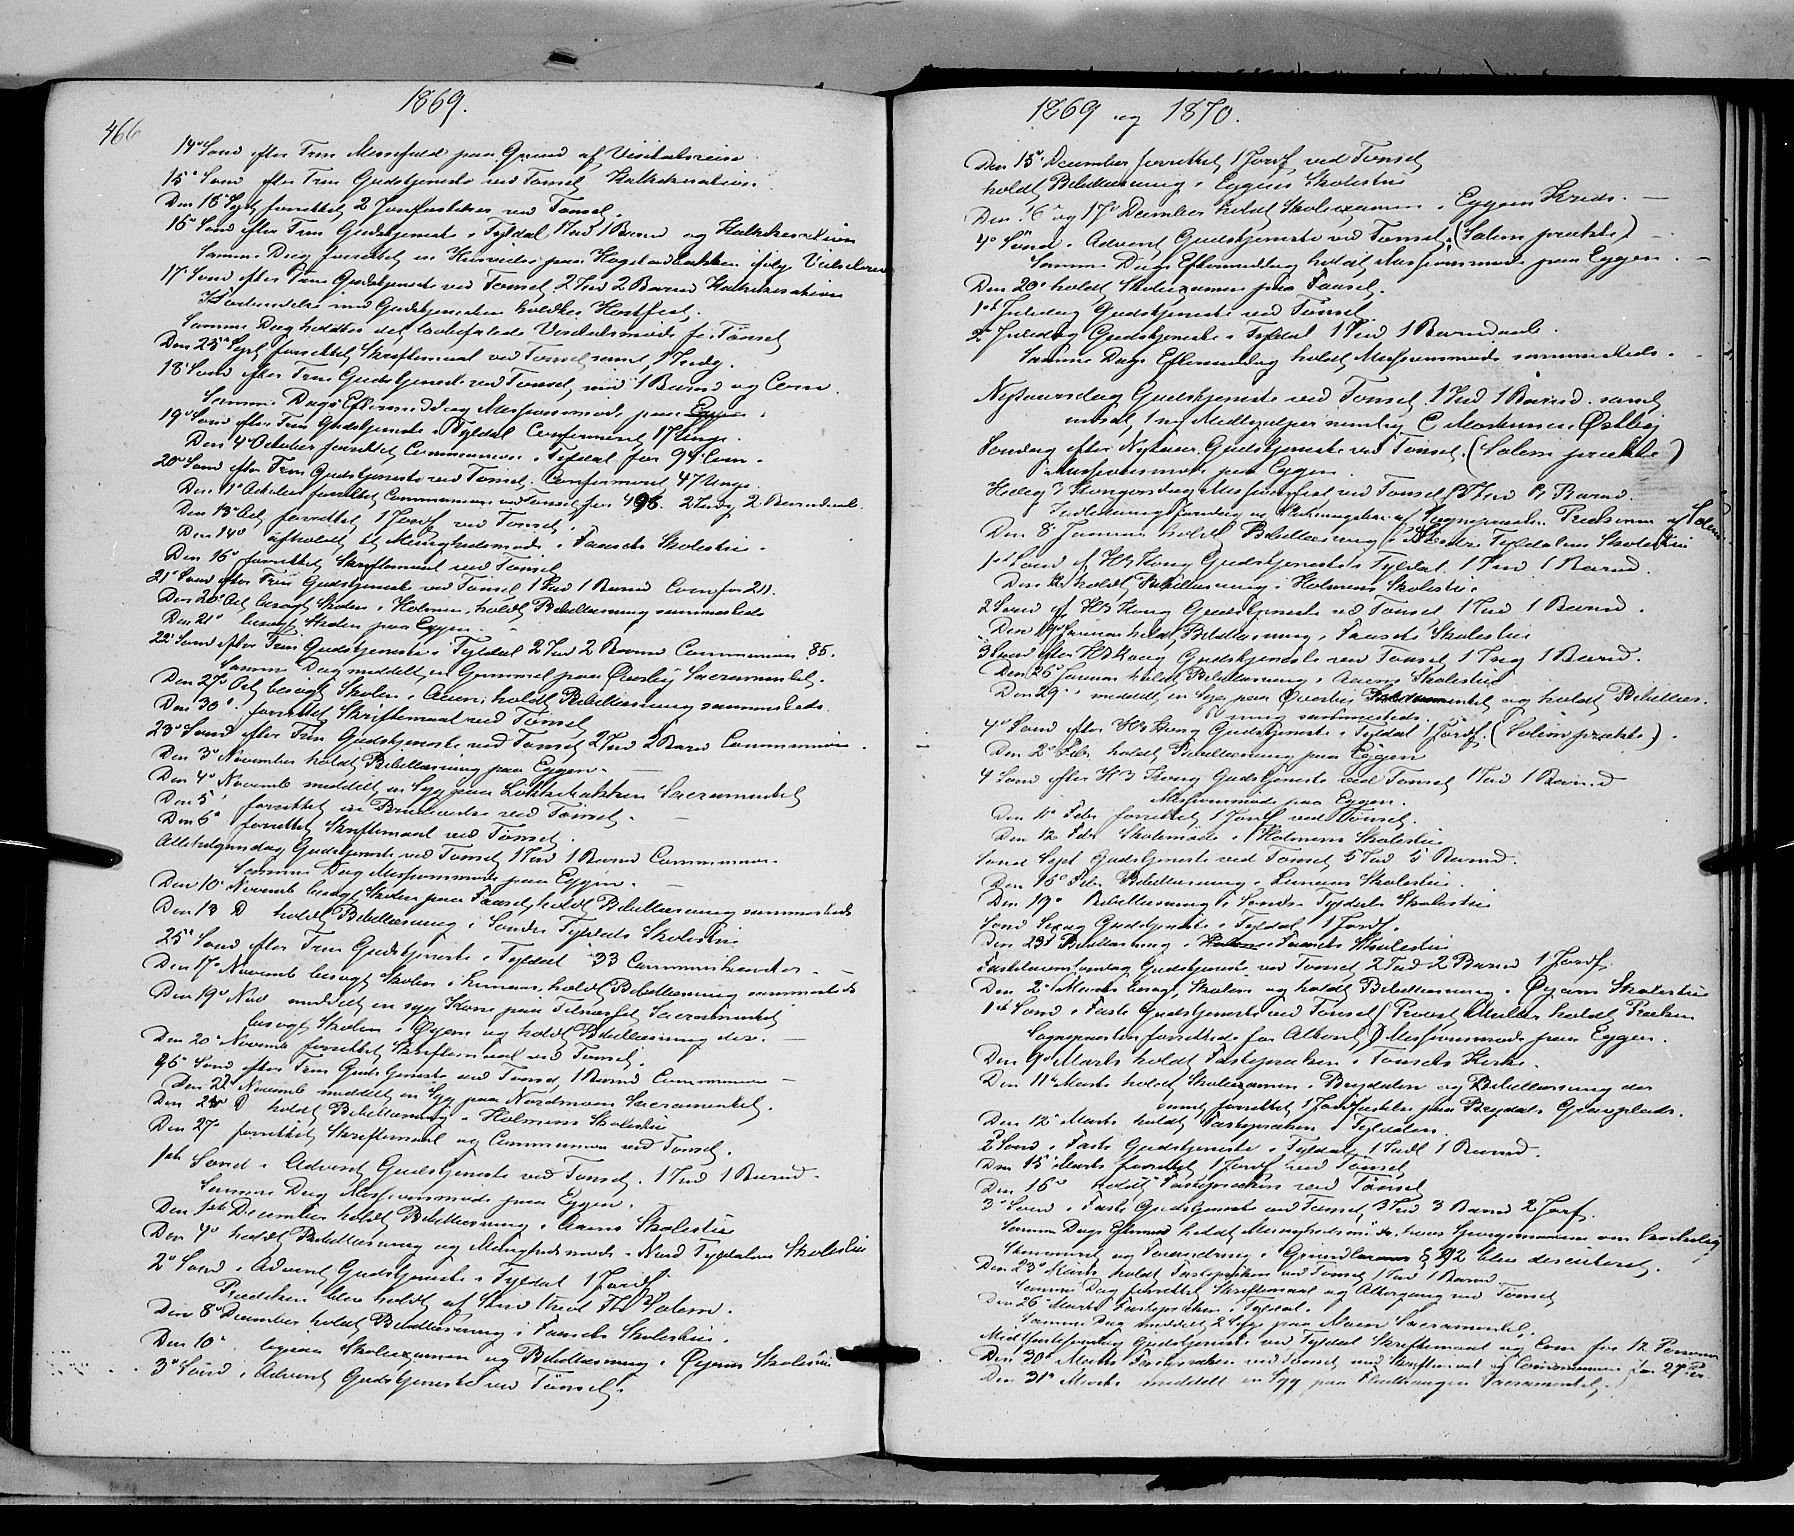 466
1869.
14de Sønd efter Trin Messefald paa Grund af Visitatsreise
15de Sønd efter Trin Gudstjeneste ved Tønset Katekisation
Den 18de Sept forrettet 2 Jordfæstelser ved Tønset.
16de Sønd efter Trin Gudstjeneste i Tyldal 1 Ind 1 Barnd og Katekisation
Samme Dag forrettet en Kirvielse paa
17de Sønd efter Trin Gudstjeneste ved Tønset, 2 Ind 2 Barnd Katekisation
I Forbindelse med Gudstjenesten holdtes Høstfest.
Samme Dag holdtes det lovbefalede Visitatsmøde f. Tønset
Den 25de Sept forrettet Skriftemaal ved Tønset samt 1 Indg.
18de Sønd efter Trin Gudstjeneste ved Tønset, med 1 Barnd og Com.
Samme Dags Eftermiddag Missionsmøde paa Eggen.
19de Sønd efter Trin Gudstjeneste i Tyldal Confirmeret 17 Unge.
Den 4de October forrettet Communion i Tyldal for 94 Com.
20de Sønd efter Trin Gudstjeneste ved Tønset. Confirmeret 47 Unge.
Den 11te October forrettet Communion ved Tønset for 496. 2 Indg 2 Barndaab.
Den 13de Oct forrettet 1 Jordf ved Tønset.
Den 14de afholdt et Menighedsmøde i Fausets Skolestue.
Den 16de forrettet Skriftemaal ved Tønset
21de Sønd efter Trin Gudstjeneste ved Tønset 1 Ind 1 Barnd Com for 211.
Den 20de Oct besøgt Skolen i Holmen, holdt Bibellæsning sammesteds
Den 21de besøgt Skolen paa Eggen.
22de Sønd efter Trin Gudstjeneste i Tyldal 2 Ind 2 Barnd Communion 85.
Samme Dag meddelt en Gammel paa Øverby Sacramentet.
Den 27de Oct besøgt Skolen i Aaen, holdt Bibellæsning sammesteds.
Den 30de forrettet Skriftemaal ved Tønset
23de Sønd efter Trin Gudstjeneste ved Tønset 2 Ind 2 Barnd Communion.
Den 3de November holdt Bibellæsning paa Eggen.
Den 4de Novemb meddelt en Syg paa Sacramentet
Den 5te forrettet en Brudevielse ved Tønset.
Den 6te forrettet Skriftemaal ved Tønset.
Allehelgensdag Gudstjeneste ved Tønset 1 Ind 1 Barnd Communion.
Samme Dag Missionsmøde paa Eggen.
Den 10de Novemb besøgt Skolen paa Fauset, holdt Bibellæsning sammesteds
Den 13 D holdt Bibellæsning i Søndre Tyldals Skolestue
25de Sønd efter Trin Gudstjeneste i Tyldal 33 Communikanter.
Den 17de Novemb besøgt Skolen i Lunaas, holdt Bibellæsning sammesteds
Den 19de Nov meddelt en syg Kone paa Telneset Sacramentet
besøgt Skolen i Øjan og holdt Bibellæsning der.
Den 20de Novemb forrettet Skriftemaal ved Tønset.
26de Sønd efter Trin Gudstjeneste ved Tønset, 1 Barnd Communion
Den 22de Novemb meddelt en Syg paa Nordmoen Sacramentet.
Den 24de D holdt Bibellæsning i Holmens Skolestue
Den 27 forrettet Skriftemaal og Communion ved Tønset.
1ste Sønd i Advent Gudstjeneste ved Tønset. 1 Ind 1 Barnd.
Samme Dag Missionsmøde paa Eggen.
Den 1ste December holdt Bibellæsning i Aaens Skolestue
Den 4de holdt Bibellæsning og Menighedsmøde i Nord Tyldalens Skolestue
2de Sønd i Advent Gudstjeneste i Tyldal 1 Jordf.
Prædiken blev holdt af Stud theol Th Solem.
Den 8de December holdt Bibellæsning i Fausets Skolestue.
Den 10de Skoleexamen og Bibellæsning i Øjans Skolestue
3de Sønd i Advent Gudstjeneste ved Tønset.
1869 og 1870.
Den 15de December forrettet 1 Jordf ved Tønset
holdt Bibellæsning i Eggens Skolestue
Den 16de og 17de December holdt Skoleexamen i Eggens Kreds.
4de Sønd i Advent Gudstjeneste ved Tønset. (Solem prækte)
Samme Dags Eftermiddag holdt Missionsmøde paa Eggen.
Den 20de holdt Skoleexamen paa Fauset.
1ste Juledag Gudstjeneste ved Tønset.
2de Juledag Gudstjeneste i Tyldal 1 Ind 1 Barndaab.
Samme Dags Eftermiddag holdt Missionsmøde sammesteds.
Nytaarsdag Gudstjeneste ved Tønset 1 Ind 1 Barnd. samt
indsat 1 ny Medhjælper nemlig C Mortensen Østby
Søndag efter Nytaar Gudstjeneste ved Tønset. (Solem prækte)
Missionsmøde paa Eggen.
Hellig 3 Kongersdag Missionsfest ved Tønset Ind Barnd.
Indledningsforedrag og af Sognepresten Prædiken af Solem
Den 8de Januar holdt Bibellæsning i Søndre Tyldalens Skolestue
1ste Sønd ef H3 Kong Gudstjeneste i Tyldal. 1 Ind 1 Barnd.
Den 12 holdt Bibellæsning i Holmens Skolestue.
2 Sønd ef H3 Kong Gudstjeneste ved Tønset 1 Ind 1 Barnd.
Den 19de Januar holdt Bibellæsning i Fausets Skolestue
3 Sønd efter H3 Kong Gudstjeneste ved Tønset 1 Ing 1 Barnd.
Den 26de Januar holdt Bibellæsning i Aaens Skolestue
Den 29de meddelt en Syg paa Øverby Sacramentet og holdt Bibellæs-
ning sammesteds.
4de Sønd efter H3 Kong Gudstjeneste i Tyldal 1 Jordf. (Solem prækte).
Den 2de Febr holdt Bibellæsning paa Eggen
4 Sønd efter H3 Kong Gudstjeneste ved Tønset 1 Ind 1 Barnd
Missionsmøde paa Eggen.
Den 11te Febr forrettet 1 Jordf ved Tønset.
Den 12 Febr Skolemøde i Holmens Skolestue
Sønd Sept Gudstjeneste ved Tønset 5 Ind 5 Barnd.
Den 16de Febr Bibellæsning i Lunaas Skolestue.
Den 19de Bibellæsning i Søndre Tyldals Skolestue
Sønd Sexag Gudstjeneste i Tyldal 1 Jordf.
Den 23de Bibellæsning i Fausets Skolestue
Fastelavnssøndag Gudstjeneste ved Tønset 2 Ind 2 Barnd 1 Jordf.
Den 2de Marts besøgt Skolen og holdt Bibellæsning i Øjans Skolestue
1ste Sønd i Faste Gudstjeneste ved Tønset (Provst Müller holdt Præken
Sognepresten forrettede for Alteret) Missionsmøde paa Eggen.
Den 9de Marts holdt Fasteprædiken i Tønsets Kirke.
Den 11te Marts holdt Skoleexamen i Brydalen og Bibellæsning der
samt forrettet 1 Jordfæstelse paa Brydals Gravplads.
Den 12te Marts holdt Fasteprædiken i Tyldalen.
2 Sønd i Faste Gudstjeneste i Tyldal 1 Indl 1 Barnd.
Den 15de Marts forrettet 1 Jordf ved Tønset
Den 16de holdt Fasteprædiken ved Tønset
3de Sønd i Faste Gudstjeneste ved Tønset, 3 Ind 3 Barnd 2 Jorf.
Samme Dags Efterm holdt Menighedsmøde, hvor Spørgsmaalene om
og Forandring i Grundlovens § 92 blev discuteret.
Den 23de Marts holdt Fasteprædiken ved Tønset 1 Ind 1 Barnd.
Samme Dag forrettet Skriftemaal og Altergang ved Tønset
Den 26de Marts Fasteprædiken i Tyldal.
Samme Dag meddelt 2 Syge paa Moen Sacramentet.
Midfastesøndag Gudstjeneste ved Tyldal Skriftemaal og Com for 12 Personer
Den 30te Marts Fasteprædiken ved Tønset med Skriftemaal og Communion for 27 Per.
Den 31te Marts meddelt en Syg paa Sacramentet.